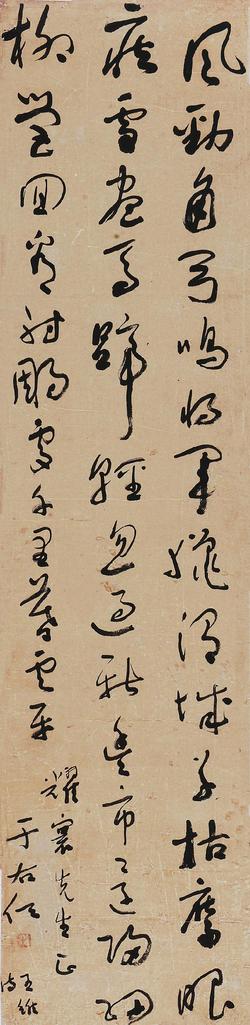 風勁角弓鳴將軍獵渭城草枯鷹眼
疾雪盡馬蹄輕忽過新豐市還歸細
柳營回看射鵰處千里暮雲平
耀寰先生正
于右任
王維
詩